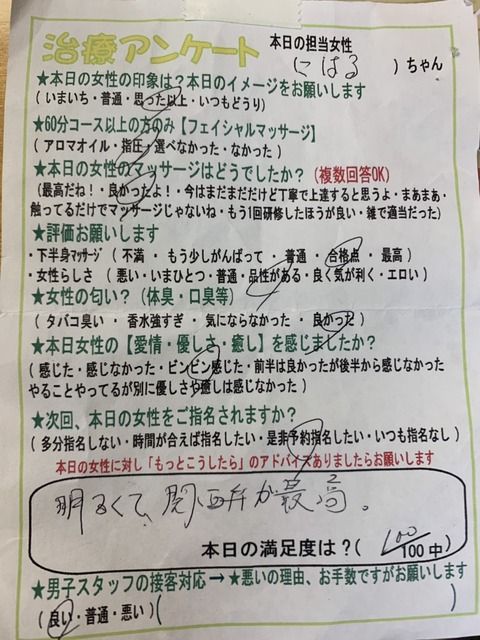 治療アンケート
本日の担当女性
( こはる )ちゃん
★本日の女性の印象は？本日のイメージをお願いします
( いまいち・普通・思った以上・いつもどうり )
★60分コース以上の方のみ【フェイシャルマッサージ】
( アロマオイル・指圧・選べなかった・なかった )
★本日の女性のマッサージはどうでしたか？(複数回答OK)
(最高だね！・良かったよ！・今はまだまだだけど丁寧で上達すると思うよ・まあまあ・
触ってるだけでマッサージじゃないね・もう1回研修したほうが良い・雑で適当だった)
★評価お願いします
・下半身マッサージ ( 不満 ・ もう少しがんばって ・ 普通 ・ 合格点 ・ 最高 )
・女性らしさ ( 悪い・いまひとつ・普通・品性がある・良く気が利く・エロい )
★女性の匂い？ (体臭・口臭等)
( タバコ臭い ・ 香水強すぎ ・ 気にならなかった ・ 良かった )
★本日の女性の【愛情・優しさ・癒し】を感じましたか？
( 感じた・感じなかった・ビンビン感じた・前半は良かったが後半から感じなかった
やることやってるが別に優しさや癒しは感じなかった )
★次回、本日の女性をご指名されますか？
( 多分指名しない・時間が合えば指名したい・是非予約指名したい・いつも指名なし )
本日の女性に対し「もっとこうしたら」のアドバイスありましたらお願いします
明るくて、関西弁が最高。
本日の満足度は？( 100/100中 )
★男子スタッフの接客対応 → ★悪いの理由、お手数ですがお願いします
(良い・普通・悪い) ( )